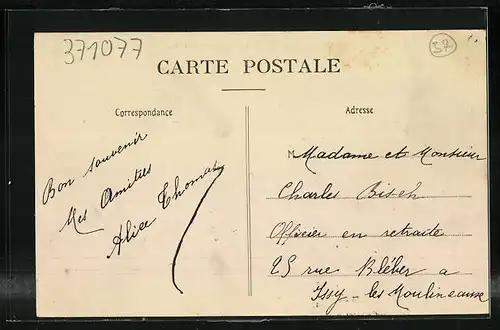 371077
37
CARTE POSTALE
Correspondance
Adresse
Bon souvenir
Mes Amitiés
Alice Thomas
M Madame et Monsieur
Charles Bisch
Officier en retraite
25 rue Kléber a
Issy-les Moulineaux